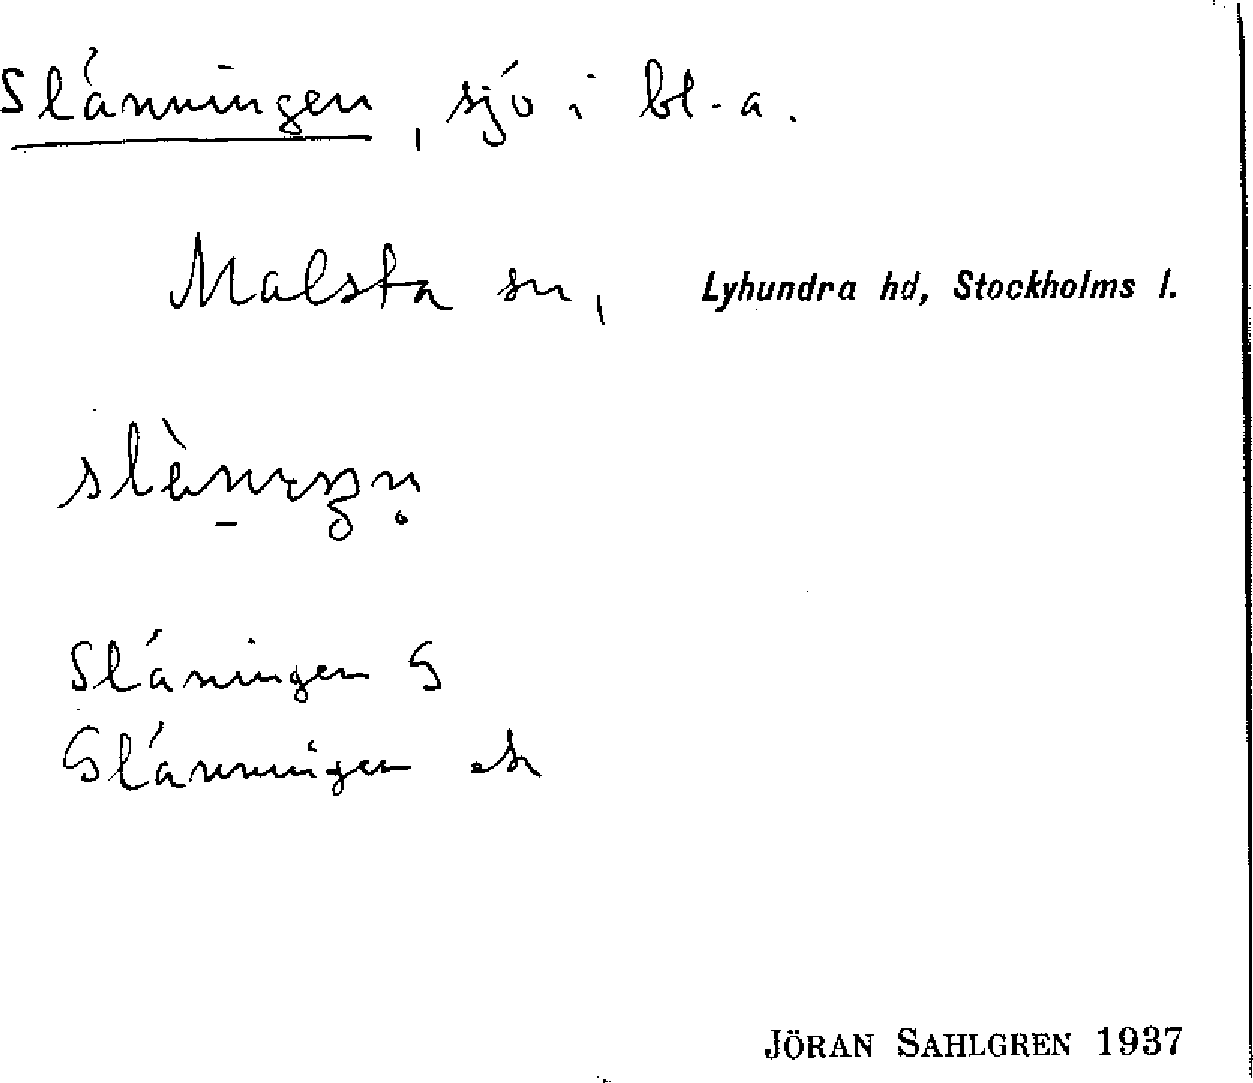 Slänningen, sjö i bl.a.
Malsta sn, Lyhundra hd, Stockholms l.
Släningen G
Slänningen ek
JÖRAN SAHLGREN 1937